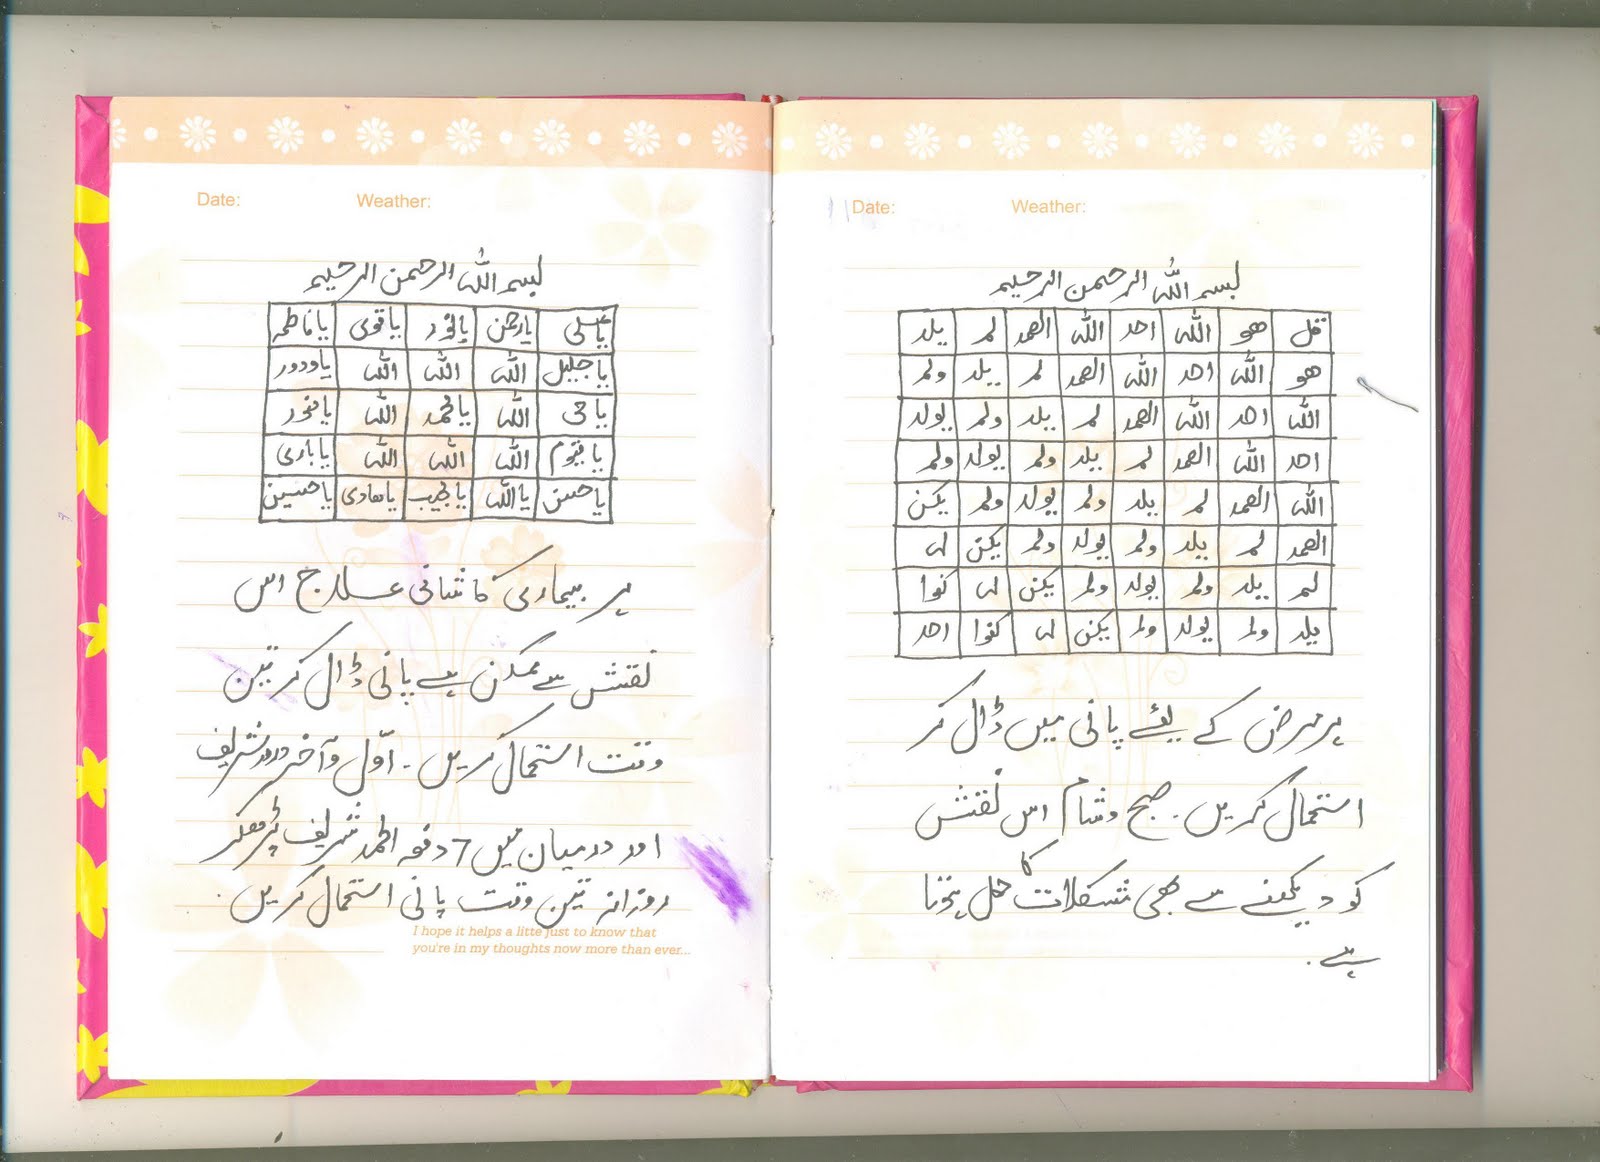 Date: Weather:
بسم اللہ الرحمن الرحیم
قل هو اللہ احد اللہ الصمد لم یلد
هو اللہ احد اللہ الصمد لم یلد ولم
اللہ احد اللہ الصمد لم یلد ولم یولد
احد اللہ الصمد لم یلد ولم یولد ولم
اللہ الصمد لم یلد ولم یولد ولم یکن
الصمد لم یلد ولم یولد ولم یکن لہ
لم یلد ولم یولد ولم یکن لہ کفوا
یلد ولم یولد ولم یکن لہ کفوا احد
ہر مرض کے لیئے پانی میں ڈال کر
استعمال کریں۔ صبح و شام اس نقش
کو دیکھنے سے بھی مشکلات کا حل ہوتا
ہے۔
Date: Weather:
بسم اللہ الرحمن الرحیم
یا علی یا رحمن یا نور یا قوی یا فاطمہ
یا جلیل اللہ اللہ اللہ یا ودود
یا حی اللہ یا محمد اللہ
یا قیوم اللہ اللہ اللہ یا باری
یا حسن یا اللہ یا مجیب یا ھادی یا حسین
ہر بیماری کا شافی علاج اس
نقش سے ممکن ہے پانی ڈال کر تین
وقت استعمال کریں۔ اوّل و آخر درود شریف
اور درمیان میں 7 دفعہ الحمد شریف پڑھ کر
روزانہ تین وقت پانی استعمال کریں۔
I hope it helps a litte just to know that
you're in my thoughts now more than ever...